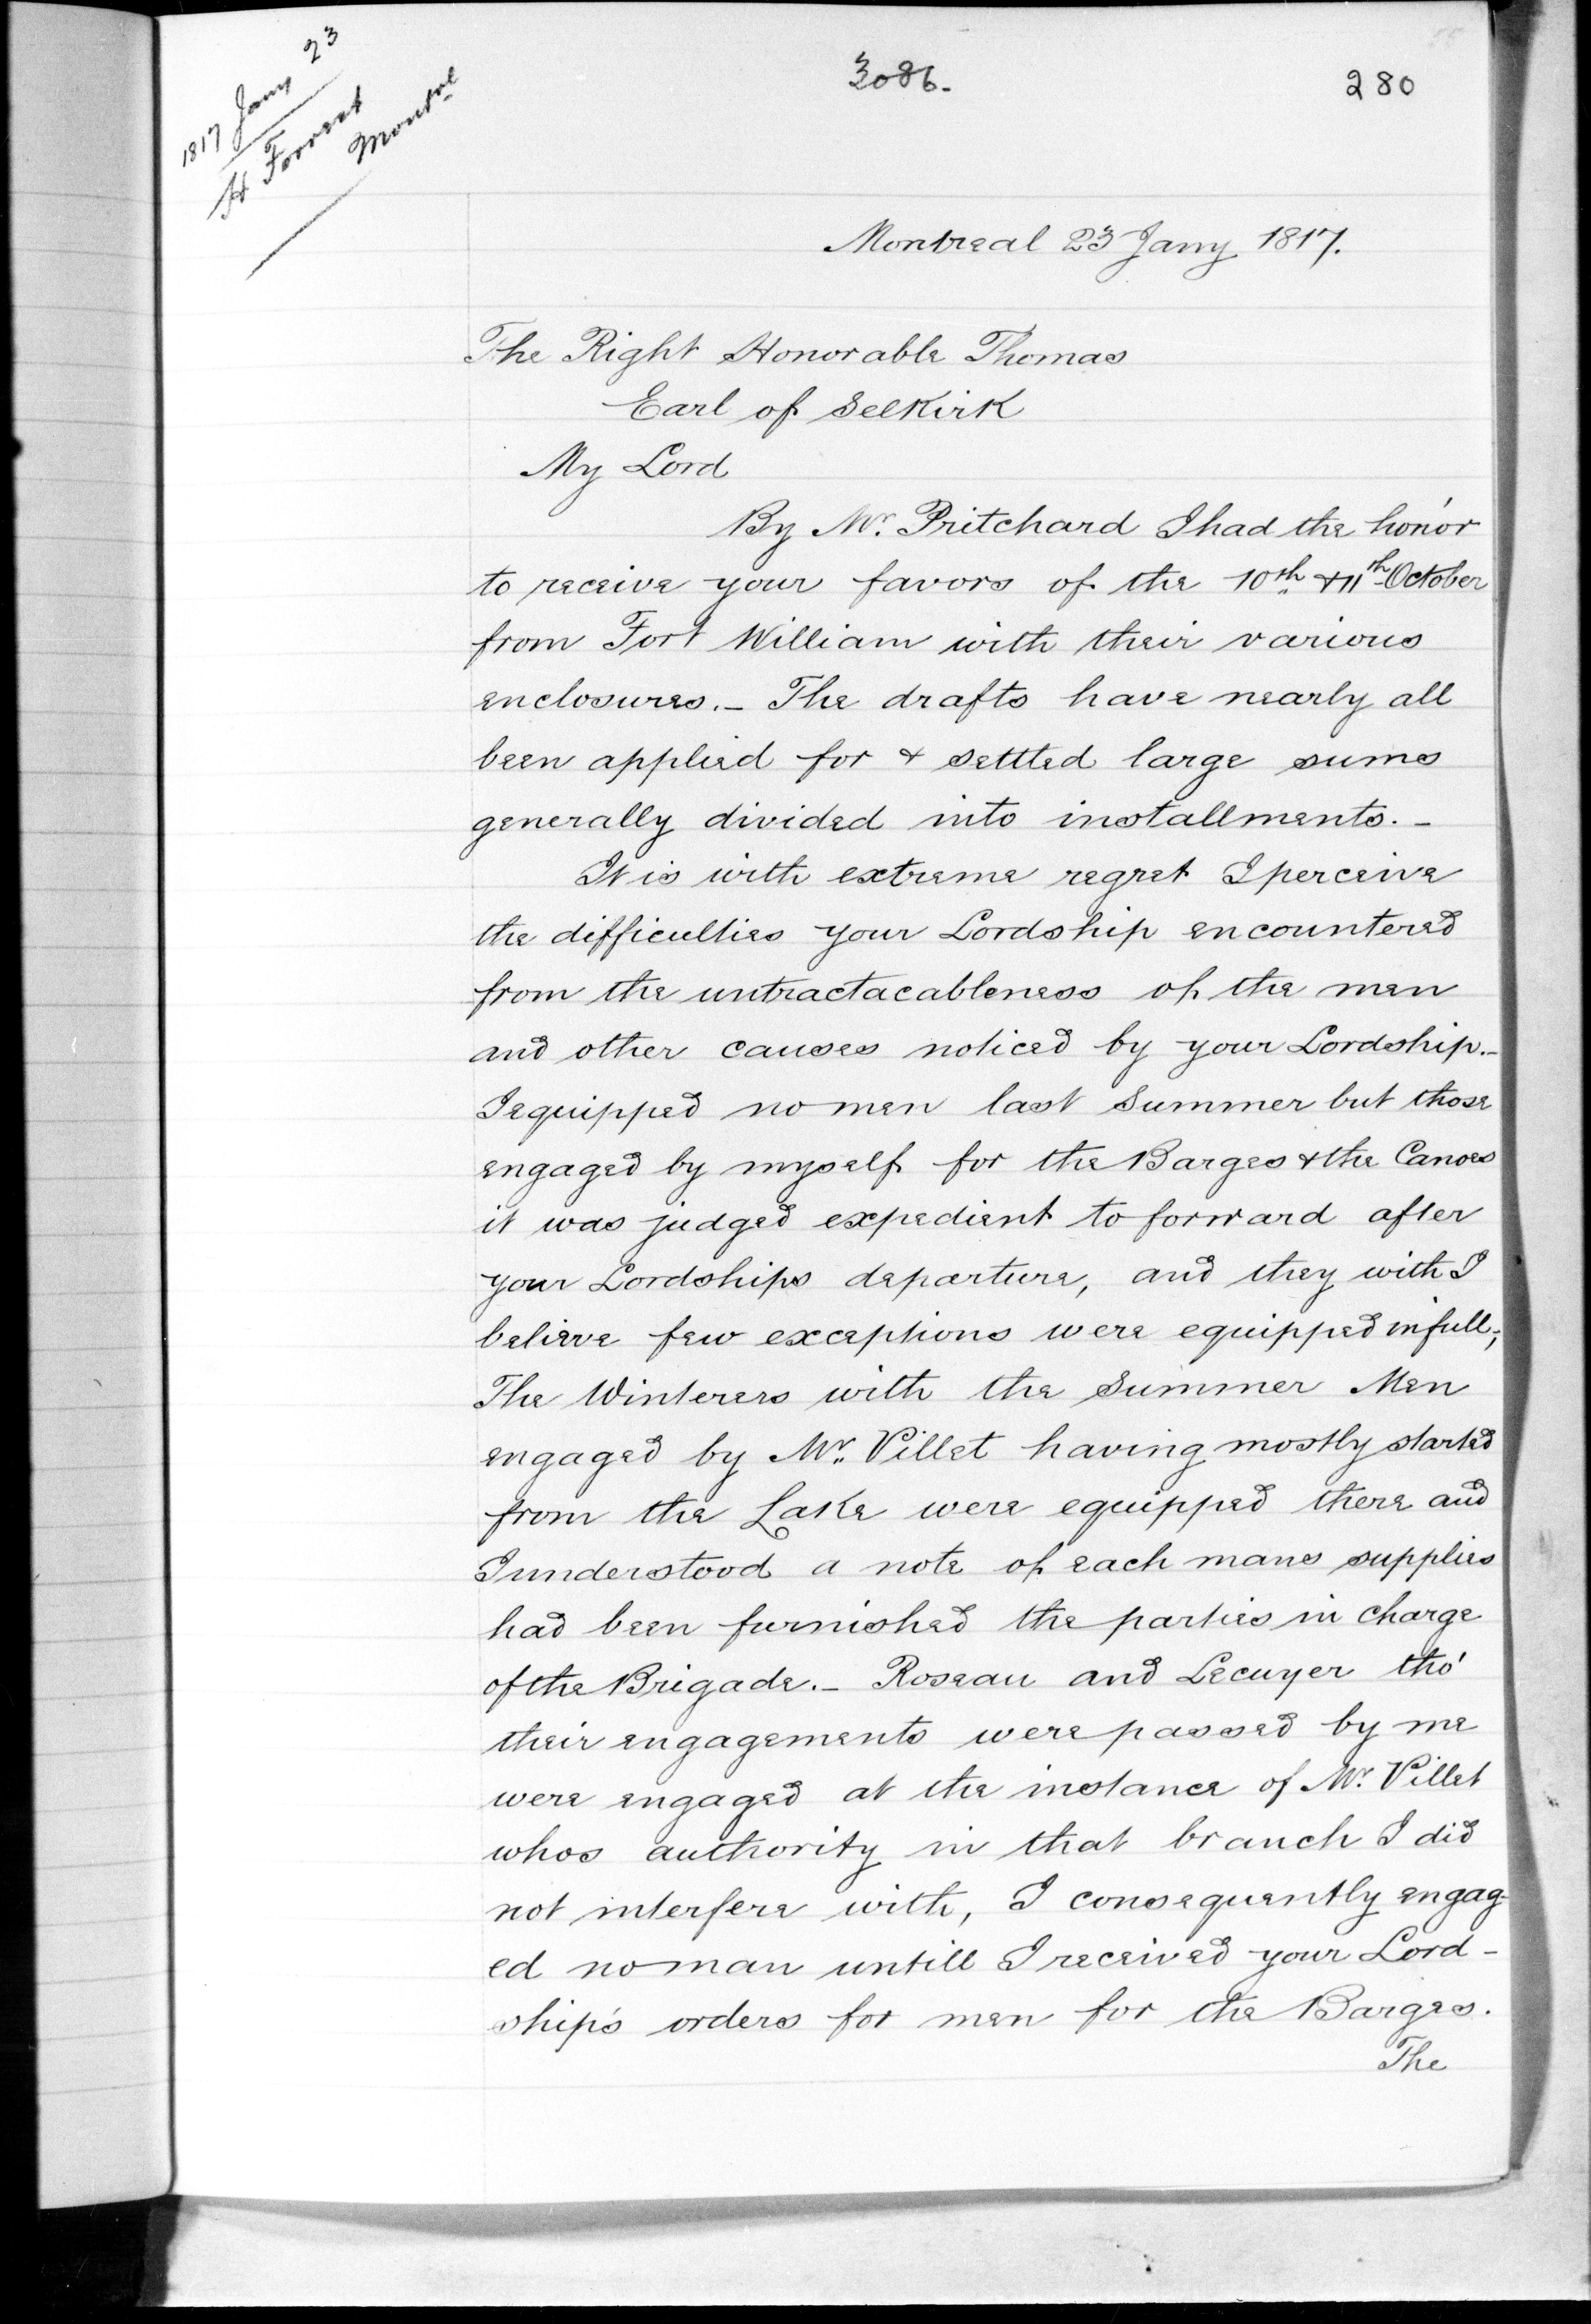 1817 Jany 23
H Forrest
Montrl
3086.
280
Montreal 23 Jany 1817.
The Right Honorable Thomas
Earl of Selkirk
My Lord
By Mr. Pritchard I had the honor
to receive your favors of the 10th & 11th October
from Fort William with their various
enclosures. - The drafts have nearly all
been applied for & settled large sums
generally divided into installments. -
It is with extreme regret I perceive
the difficulties your Lordship encountered
from the untractacableness of the men
and other causes noticed by your Lordship. -
I equipped no men last Summer but those
engaged by myself for the Barges & the Canoes
it was judged expedient to forward after
your Lordships departure, and they with I
believe few exceptions were equipped in full;
The Winterers with the Summer Men
engaged by Mr. Pillet having mostly started
from the Lake were equipped there and
I understood a note of each mans supplies
had been furnished the parties in charge
of the Brigade. - Roseau and Lecuyer tho'
their engagements were passed by me
were engaged at the instance of Mr. Pillet
whos authority in that branch I did
not interfere with, I consequently engag-
ed no man untill I received your Lord-
ship's orders for men for the Barges.
The